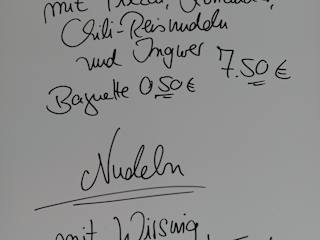 mit
Chili-Reisnudeln
und Ingwer 7.50 €
Baguette 0,50 €
Nudeln
mit Wirsing